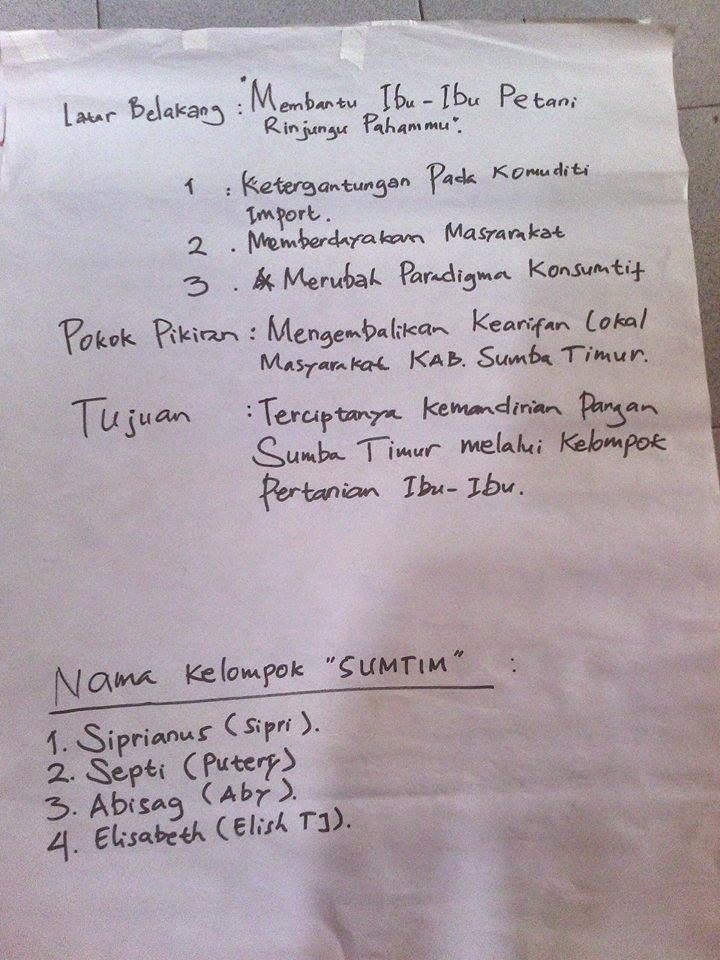 Latar Belakang : "Membantu Ibu-Ibu Petani
Rinjungu Pahammu".
1 : Ketergantungan Pada Komuditi
Import.
2 . Memberdayakan Masyarakat
3 . Merubah Paradigma Konsumtif
Pokok Pikiran : Mengembalikan Kearifan Lokal
Masyarakat KAB. Sumba Timur.
Tujuan : Terciptanya Kemandirian Pangan
Sumba Timur melalui Kelompok
Pertanian Ibu-Ibu.
Nama Kelompok "SUMTIM" :
1. Siprianus (Sipri).
2. Septi (Putery)
3. Abisag (Aby).
4. Elisabeth (Elish TJ).